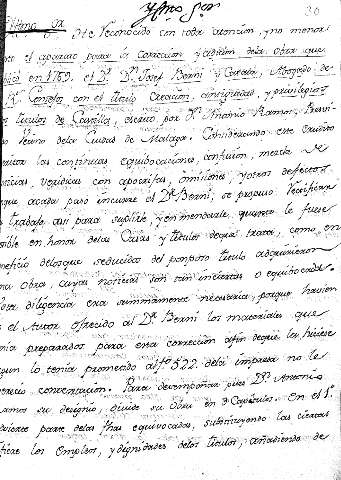 Yltmo Sor
30
He reconocido con toda atencion, y no menor
el aparato para la correccion y adicion dela obra que
en 1769. el Dr. Dn. Josef Berni y Catalá, Abogado de
Consejos con el título Creacion, antiguedad, y privilegios
los títulos de Castilla, escrito por Dn. Antonio Ramos, Presbi-
Vecino dela Ciudad de Malaga. Considerando este erudito
las continuas equibocaciones, confusion, mezcla de
noticias veridicas con apocrifas, omisiones y otros defectos
que acada paso incurre el Dr. Berni, se propuso
trabajo asi para suplirle y enmendarle, quanto le fuere
posible en honor delas Casas y títulos deque trata, como en
beneficio delos que seducidos del pomposo título adquirieron
una obra, cuyas noticias son tan inciertas o equibocadas.
esta diligencia era sumamente necesaria, porque havien
el Autor ofrecido al Dr. Berni los materiales que
tenia preparados para esta correccion afin deque la hiciese
segun lo tenia prometido al fo. 522. dela impresa no le
contextacion. Para desempeñar pues Dn. Antonio
Ramos su designio, divide su Obra en 3 Capitulos. En el 1o.
advierte parte delas fhas equivocadas, substituyendo las ciertas
los empleos, y dignidades delos títulos, añadiendo de